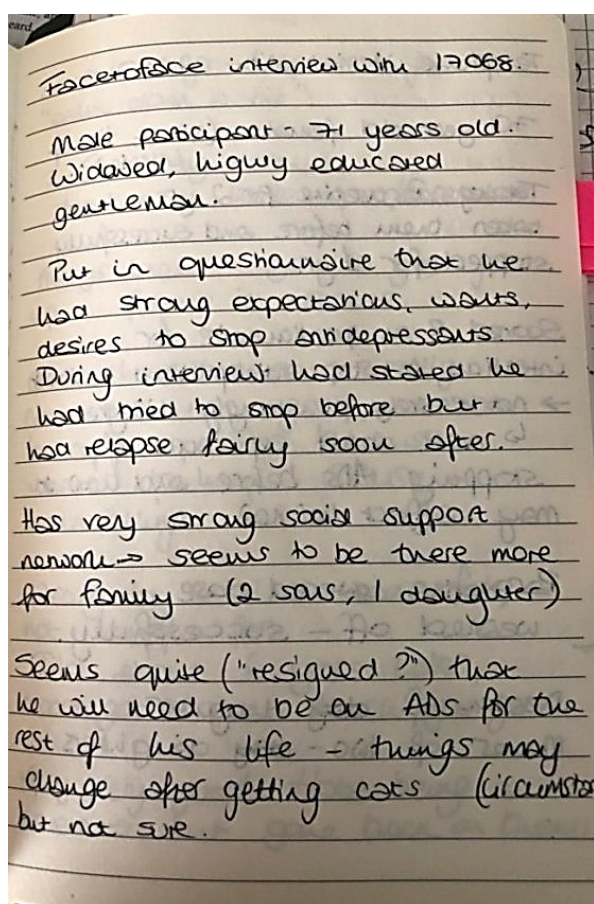 Facetoface interview with 17068.
Male participant - 71 years old.
Widowed, highly educated
gentleman.
Put in questionnaire that he
had strong expectations, wants,
desires to stop antidepressants.
During interview had stated he
had tried to stop before but
had relapse fairly soon after.
Has very strong social support
network → seems to be there more
for family - (2 sons, 1 daughter)
Seems quite ("resigned?") that
he will need to be on ADs for the
rest of his life - things may
change after getting cats (circumsta
but not sure.